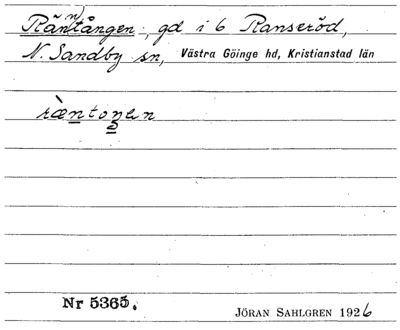 Rän(n)tången, gd i 6 Ranseröd,
N. Sandby sn, Västra Göinge hd, Kristianstad län
ræ̀ntoŋen
Nr 5365.
JÖRAN SAHLGREN 1926